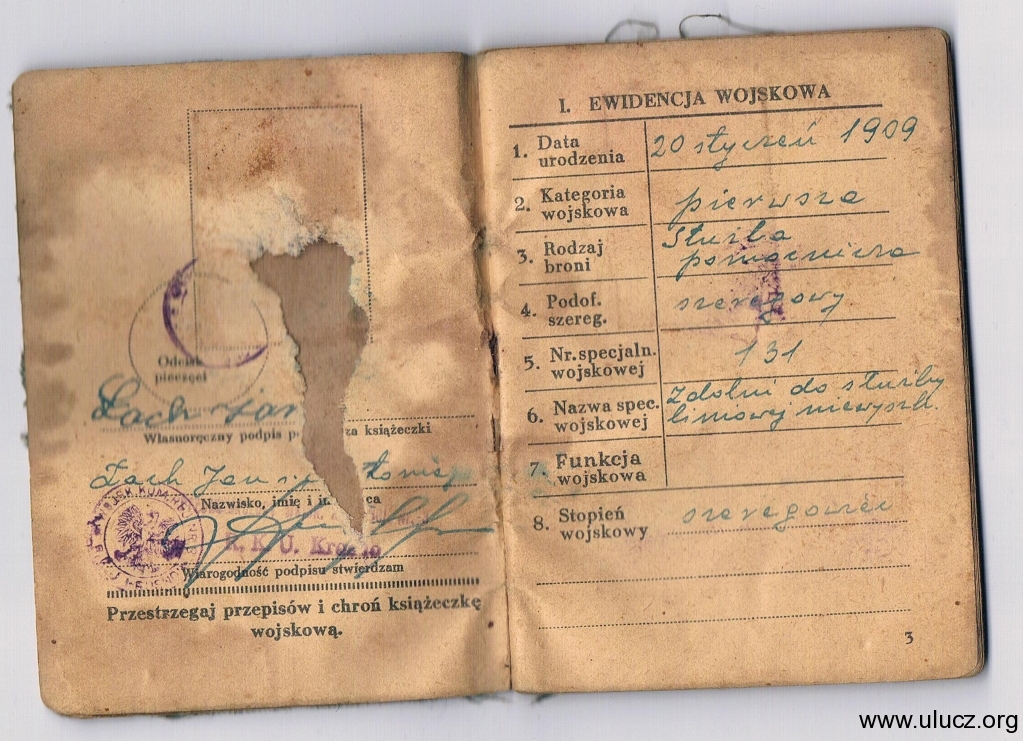 Odcisk
pieczęci
Łach Jan
Własnoręczny podpis p za książeczki
Łach Jan s
Nazwisko, imię i im ca
R. K. U. Krosno
Wiarogodność podpisu stwierdzam
Przestrzegaj przepisów i chroń książeczkę
wojskową.
I. EWIDENCJA WOJSKOWA
1. Data urodzenia 20 styczeń 1909
2. Kategoria wojskowa pierwsza
3. Rodzaj broni Służba pomocnicza
4. Podof. szereg. szeregowy
5. Nr. specjaln. wojskowej 131
6. Nazwa spec. wojskowej Zdolni do służby liniowej niewyszk.
7. Funkcja wojskowa
8. Stopień wojskowy szeregowiec
3
www.ulucz.org